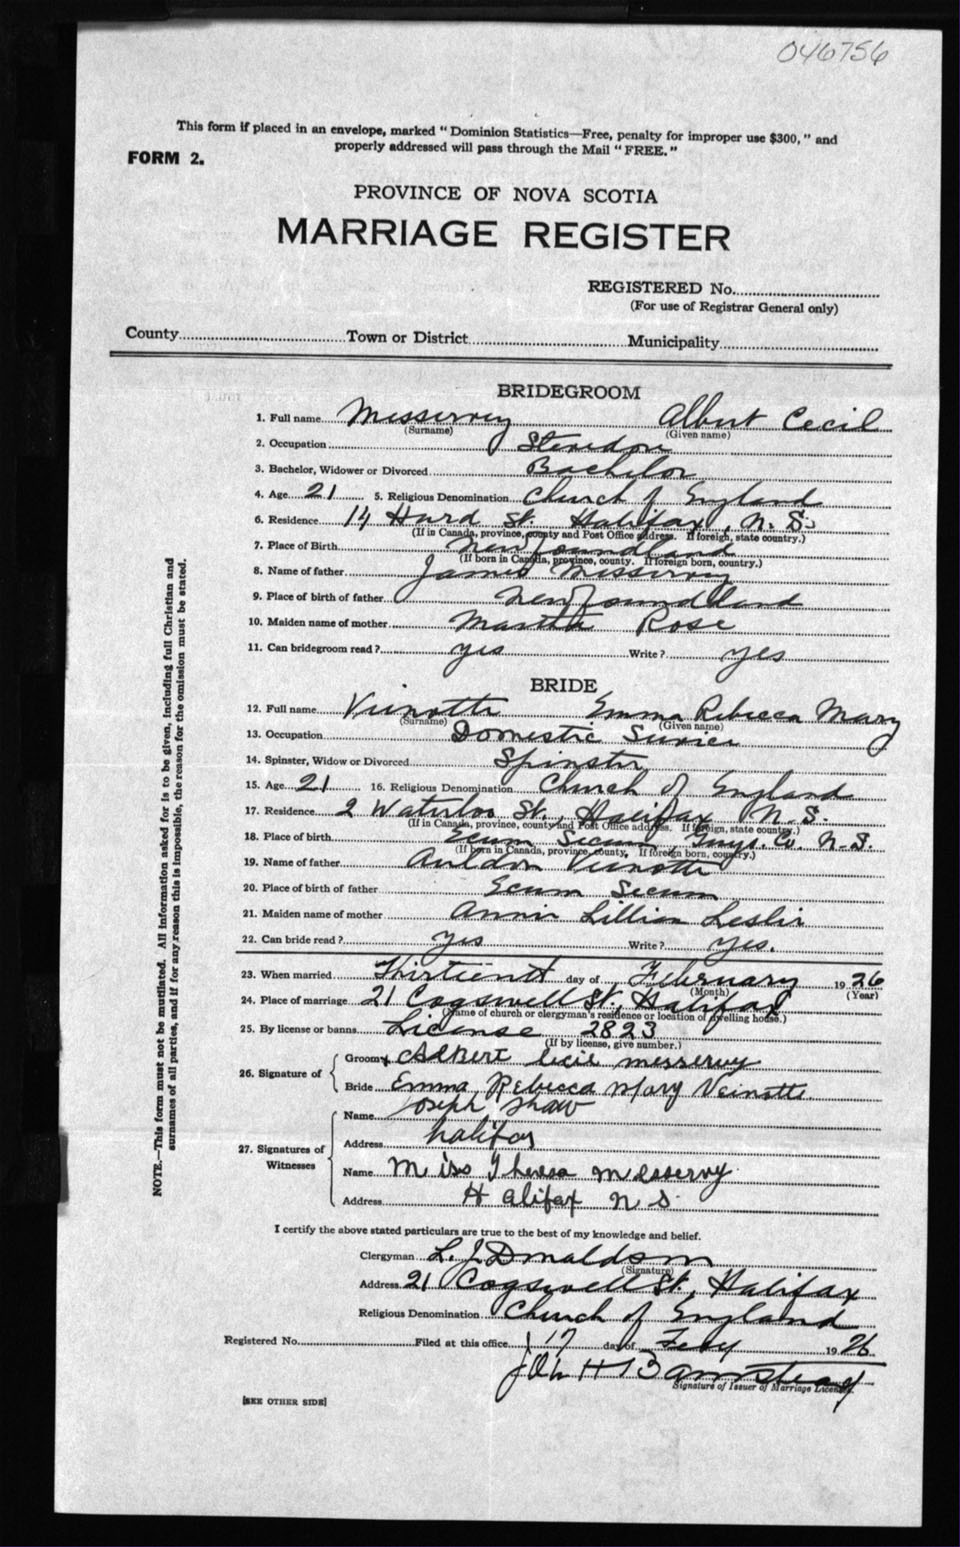 046756
This form if placed in an envelope, marked "Dominion Statistics—Free, penalty for improper use $300," and
properly addressed will pass through the Mail "FREE."
FORM 2.
PROVINCE OF NOVA SCOTIA
MARRIAGE REGISTER
REGISTERED No.
(For use of Registrar General only)
County Town or District Municipality
BRIDEGROOM
1. Full name Messervey Albert Cecil
(Surname) (Given name)
2. Occupation Stevedore
3. Bachelor, Widower or Divorced Bachelor
4. Age 21 5. Religious Denomination Church of England
6. Residence 14 Hurd St. Halifax, N.S.
(If in Canada, province, county and Post Office address. If foreign, state country.)
7. Place of Birth Newfoundland
(If born in Canada, province, county. If foreign born, country.)
8. Name of father James Messervey
9. Place of birth of father Newfoundland
10. Maiden name of mother Martha Rose
11. Can bridegroom read? yes Write? yes
BRIDE
12. Full name Vienotte Emma Rebecca Mary
(Surname) (Given name)
13. Occupation Domestic Service
14. Spinster, Widow or Divorced Spinster
15. Age 21 16. Religious Denomination Church of England
17. Residence 2 Waterloo St., Halifax N.S.
(If in Canada, province, county and Post Office address. If foreign, state country.)
18. Place of birth Ecum Secum, Guys. Co. N.S.
(If born in Canada, province, county, If foreign born, country.)
19. Name of father Auldon Vienotte
20. Place of birth of father Ecum Secum
21. Maiden name of mother Annie Lillian Leslie
22. Can bride read? yes Write? yes.
23. When married Thirteenth day of February 1926
(Month) (Year)
24. Place of marriage 21 Cogswell St., Halifax
(Name of church or clergyman's residence or location of dwelling house.)
25. By license or banns License 2823
(If by license, give number.)
26. Signature of
Groom x Albert Cecil Messervy
Bride Emma Rebecca Mary Veinotte
27. Signatures of Witnesses
Name Joseph Shaw
Address halifax
Name Miss Theresa Messervy
Address Halifax N S.
I certify the above stated particulars are true to the best of my knowledge and belief.
Clergyman L. J. Donaldson
(Signature)
Address 21 Cogswell St., Halifax
Religious Denomination Church of England
Registered No. Filed at this office 17 day of Feby 1926
John H Barnstead
Signature of Issuer of Marriage License.
[SEE OTHER SIDE]
NOTE.—This form must not be mutilated. All information asked for is to be given, including full Christian and
surnames of all parties, and if for any reason this is impossible, the reason for the omission must be stated.